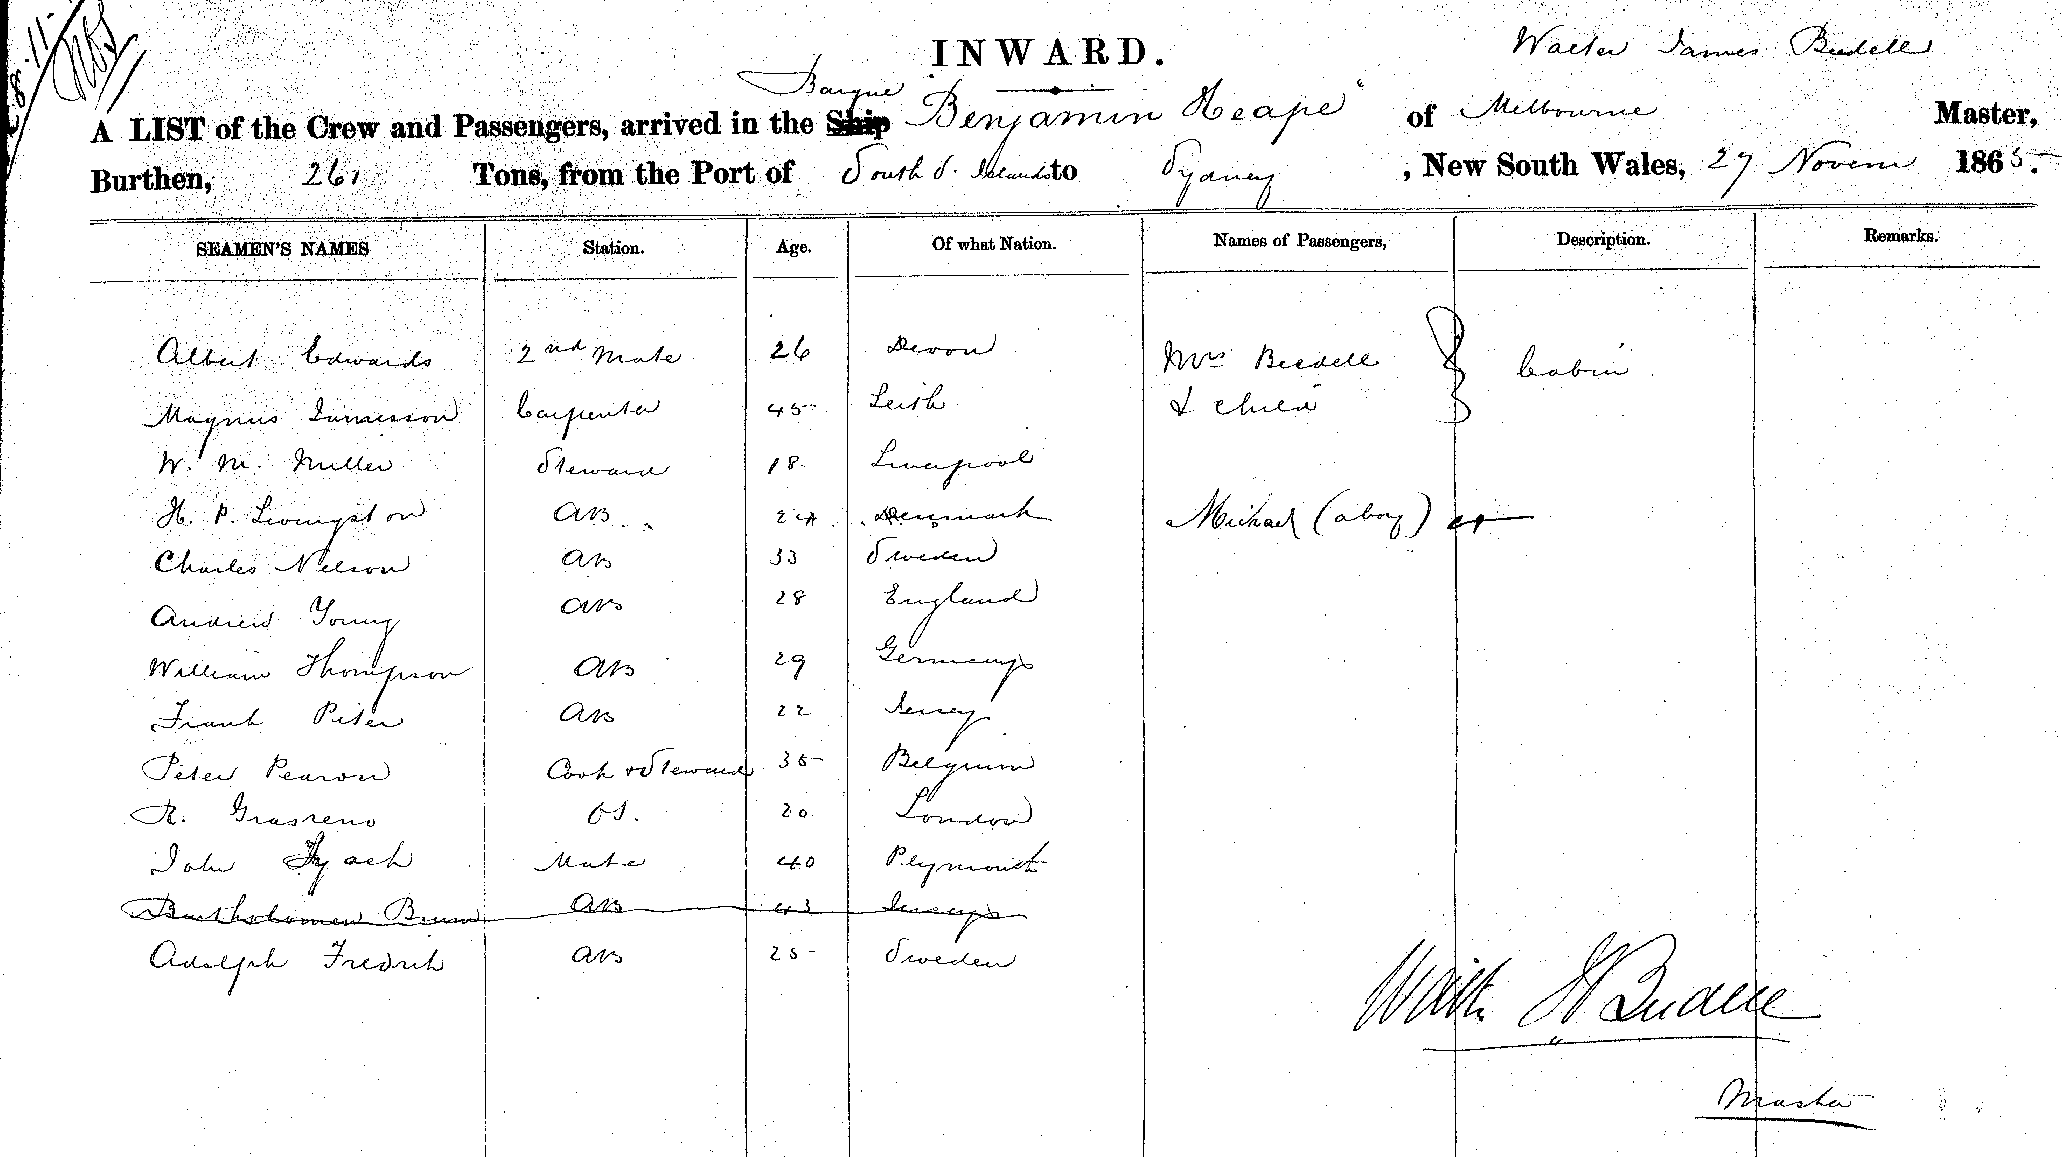 INWARD.
Walter James Beedell
Barque
A LIST of the Crew and Passengers, arrived in the Ship "Benjamin Heape" of Melbourne Master,
Burthen, 261 Tons, from the Port of South S. Islands to Sydney, New South Wales, 27 Novem 1865.
SEAMEN'S NAMES Station. Age. Of what Nation. Names of Passengers, Description. Remarks.
Albert Edwards 2nd Mate 26 Devon Mrs Beedell Cabin
Magnus Jamieson Carpenter 45 Leith & child
W. M. Miller Steward 18 Liverpool
H. P. Livingston AB 24 Denmark Michael (a boy)
Charles Nelson AB 33 Sweden
Andrew Young AB 28 England
William Thompson AB 29 Germany
Frank Peter AB 22 Jersey
Peter Pearon Cook & Steward 35 Belgium
R. OS. 20 London
John Mate 40 Plymouth
Bartholomew AB 43 Jersey
Adolph Fredrik AB 25 Sweden
Walter J Beedell
Master